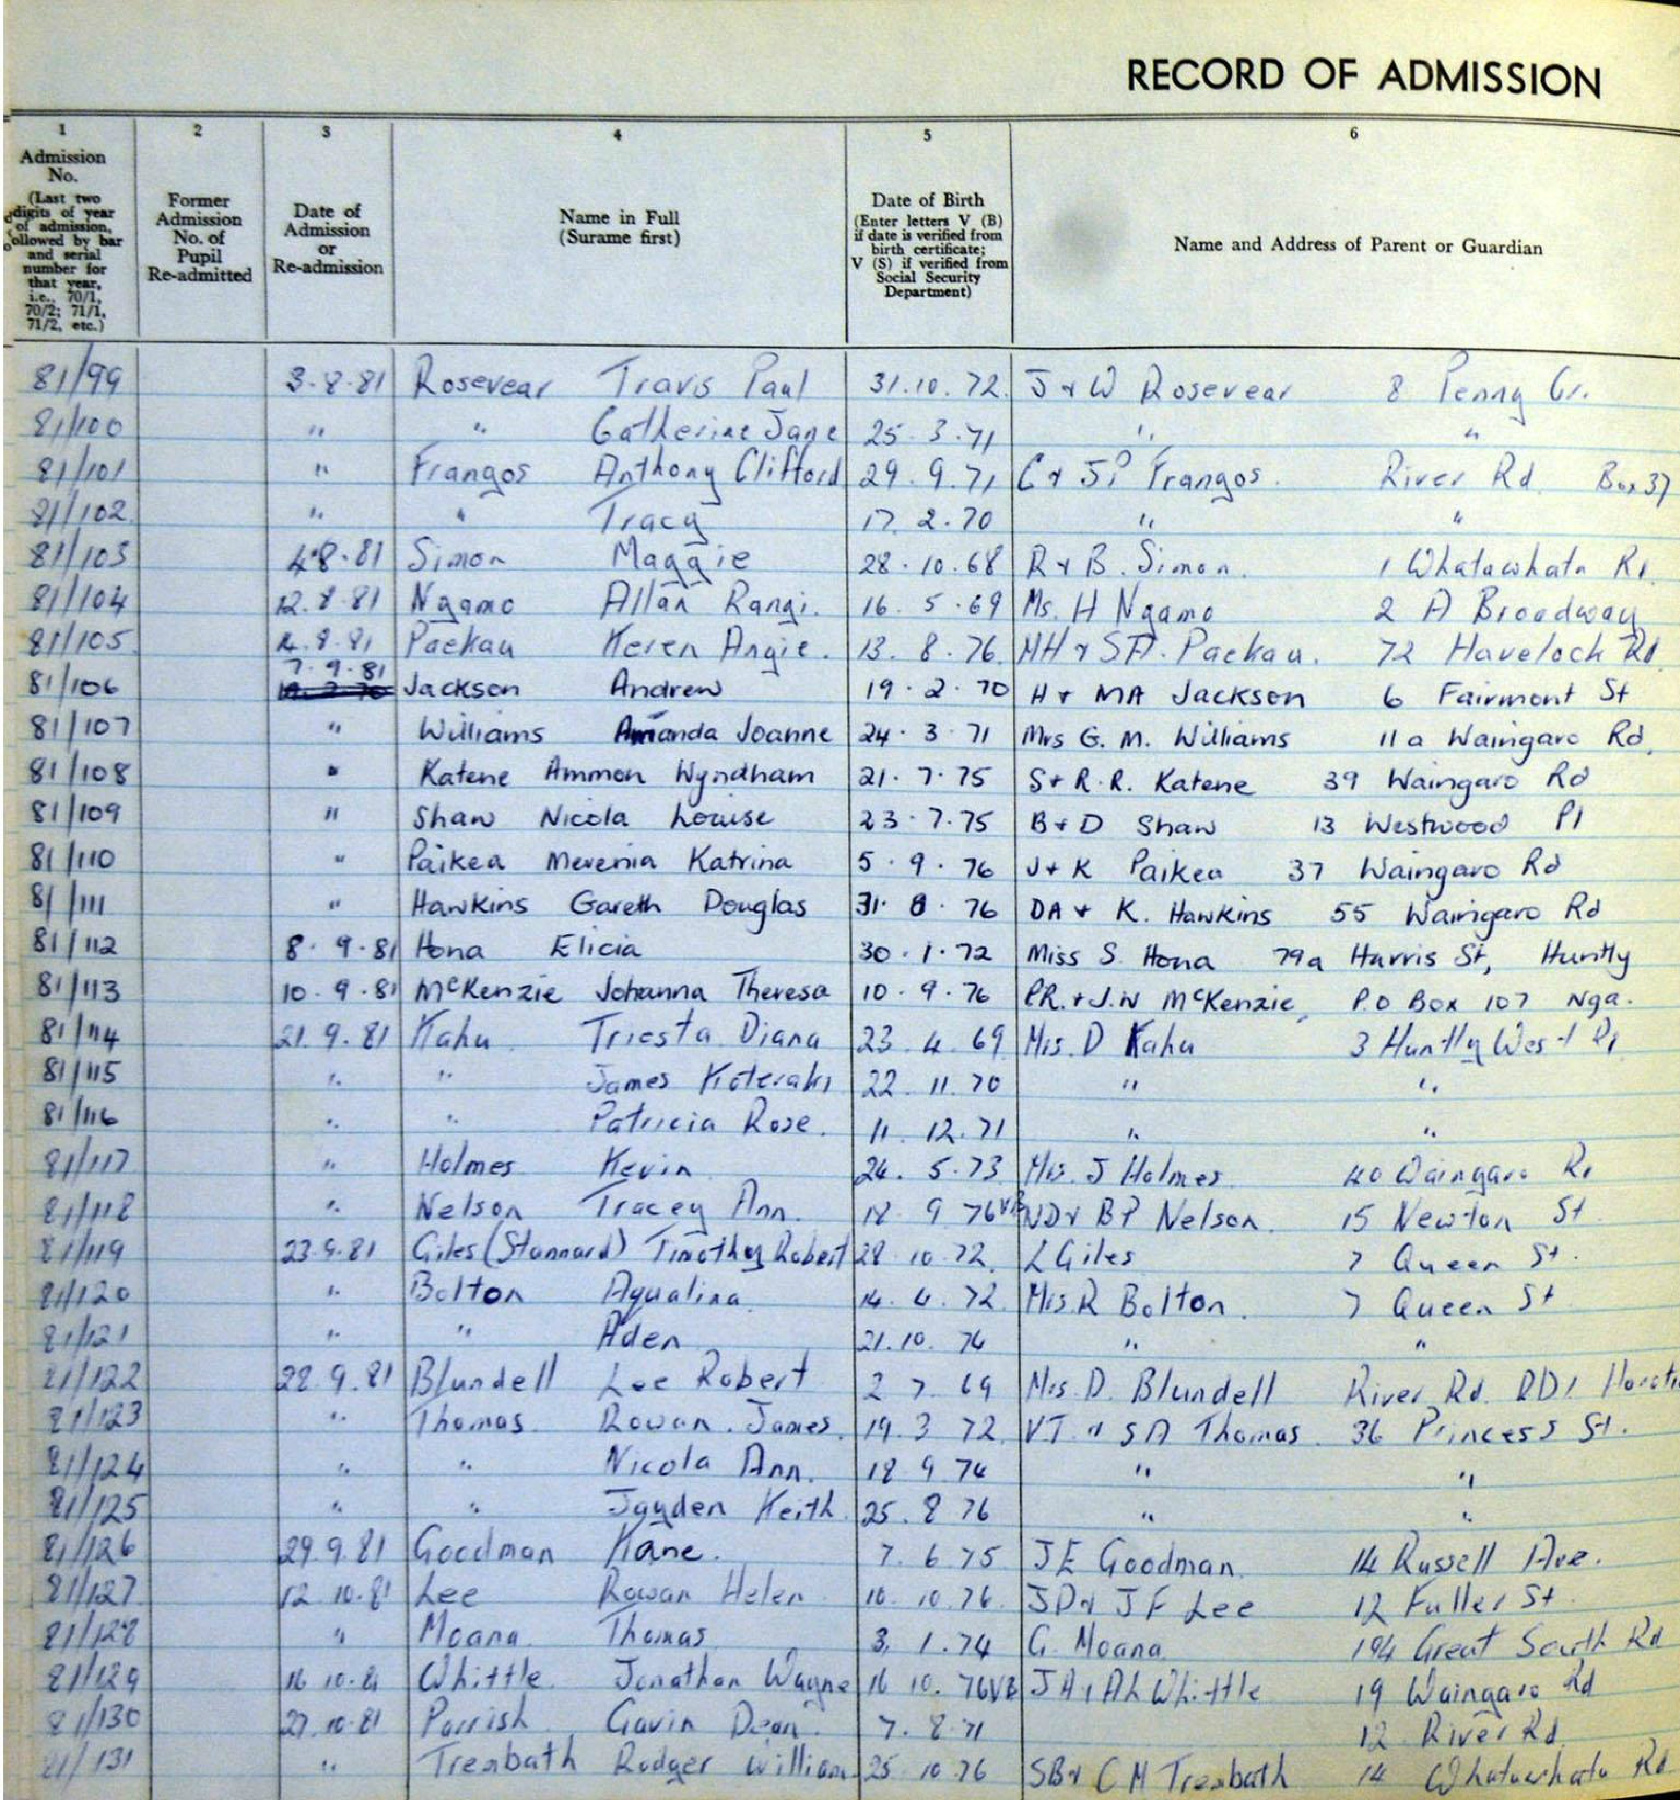 RECORD OF ADMISSION
1 2 3 4 5 6
Admission No. (Last two digits of year of admission, followed by bar and serial number for that year, i.e., 70/1, 70/2; 71/1, 71/2, etc.)
Former Admission No. of Pupil Re-admitted
Date of Admission or Re-admission
Name in Full (Surame first)
Date of Birth (Enter letters V (B) if date is verified from birth certificate; V (S) if verified from Social Security Department)
Name and Address of Parent or Guardian
81/99 3.8.81 Rosevear Travis Paul 31.10.72 J & W Rosevear 8 Penny Cr.
81/100 " " Catherine Jane 25.3.71 " "
81/101 " Frangos Anthony Clifford 29.9.71 C & JP Frangos. River Rd. Box 37
81/102 " " Tracy 17.2.70 " "
81/103 4.8.81 Simon Maggie 28.10.68 R & B. Simon. 1 Whatawhata Rd.
81/104 12.8.81 Ngamo Allan Rangi. 16.5.69 Ms. H Ngamo 2 A Broadway
81/105 14.8.81 Paekau Keren Angie. 13.8.76 MH & SA. Paekau. 72 Havelock Rd.
81/106 7.9.81 Jackson Andrew 19.2.70 H & MA Jackson 6 Fairmont St
81/107 " Williams Amanda Joanne 24.3.71 Mrs G. M. Williams 11a Waingaro Rd.
81/108 " Katene Ammon Wyndham 21.7.75 S & R.R. Katene 39 Waingaro Rd
81/109 " Shaw Nicola Louise 23.7.75 B & D Shaw 13 Westwood Pl
81/110 " Paikea Merenia Katrina 5.9.76 J & K Paikea 37 Waingaro Rd
81/111 " Hawkins Gareth Douglas 31.8.76 DA & K. Hawkins 55 Waingaro Rd
81/112 8.9.81 Hona Elicia 30.1.72 Miss S. Hona 79a Harris St, Huntly
81/113 10.9.81 McKenzie Johanna Theresa 10.9.76 P.R. & J.W McKenzie, P.O Box 107 Nga.
81/114 21.9.81 Kahu Triesta Diana 23.4.69 Mrs. D Kahu 3 Huntly West Pl
81/115 " " James 22.11.70 " "
81/116 " " Patricia Rose. 11.12.71 " "
81/117 " Holmes Kevin 24.5.73 Mrs. J Holmes 40 Waingaro Rd
81/118 " Nelson Tracey Ann. 18.9.76 VB ND & BP Nelson. 15 Newton St
81/119 23.9.81 Giles (Stannard) Timothy Robert 28.10.72. L Giles 7 Queen St.
81/120 " Bolton Aqualina 14.4.72 Mrs R Bolton. 7 Queen St
81/121 " " Aden 21.10.74 " "
81/122 28.9.81 Blundell Lee Robert 2.7.69 Mrs. D. Blundell River Rd. RD1
81/123 " Thomas Rowan James. 19.3.72 V.J. & S A Thomas. 36 Princess St.
81/124 " " Nicola Ann. 18.9.74 " "
81/125 " " Jayden Keith 25.8.76 " "
81/126 29.9.81 Goodman Kane. 7.6.75 J E Goodman. 14 Russell Ave.
81/127 12.10.81 Lee Rowan Helen 10.10.76. JD & J F Lee 12 Fuller St.
81/128 " Moana Thomas 3.1.74 G. Moana 194 Great South Rd
81/129 16.10.81 Whittle Jonathan Wayne 16.10.76 VB JA & AL Whittle 19 Waingaro Rd
81/130 27.10.81 Parrish Gavin Dean. 7.8.71 12 River Rd.
81/131 " Trembath Rodger William 25.10.76 SB & C M Trembath 14 Whatawhata Rd